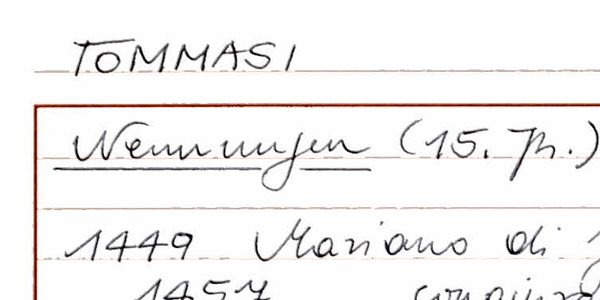 TOMMASI
Nennungen (15. Jh.)
1449 Mariano di
1457